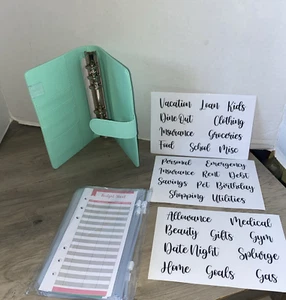 Vacation Loan Kids
Dine Out Clothing
Insurance Groceries
Food School Misc
Personal Emergency
Insurance Rent Debt
Savings Pet Birthday
Shopping Utilities
Allowance Medical
Beauty Gifts Gym
Date Night Splurge
Home Goals Gas